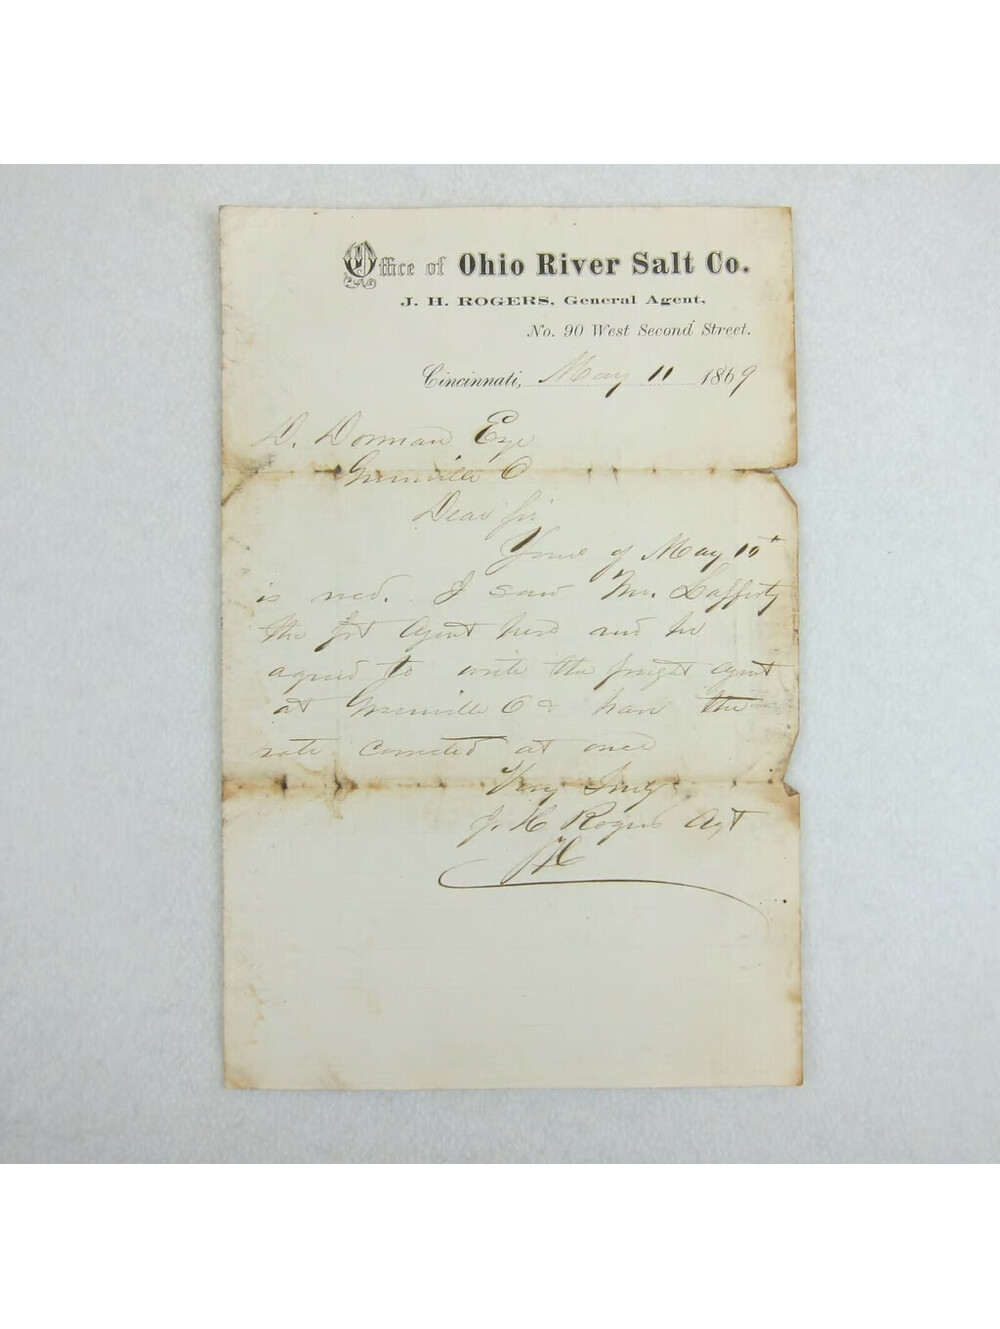 Office of Ohio River Salt Co.
J. H. ROGERS, General Agent,
No. 90 West Second Street.
Cincinnati, May 11 1869
D. Dorman Esqr
Greenville O
Dear Sir
Yours of May 10th
is recd. I saw Mr. Lafferty
the frt Agent here and he
agreed to write the freight agent
at Greenville O & have the
rate corrected at once
Very Truly
J. H. Rogers Agt